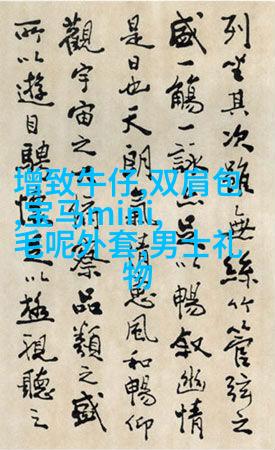 增致牛仔,双肩包
,宝马mini,
毛呢外套,男士礼
物
列坐其次雖無絲竹管弦之
盛一觴一詠足以暢敘幽情
是日也天朗清惠風和暢仰
觀宇宙之察品類之盛
所以遊目騁懷以極視聽之